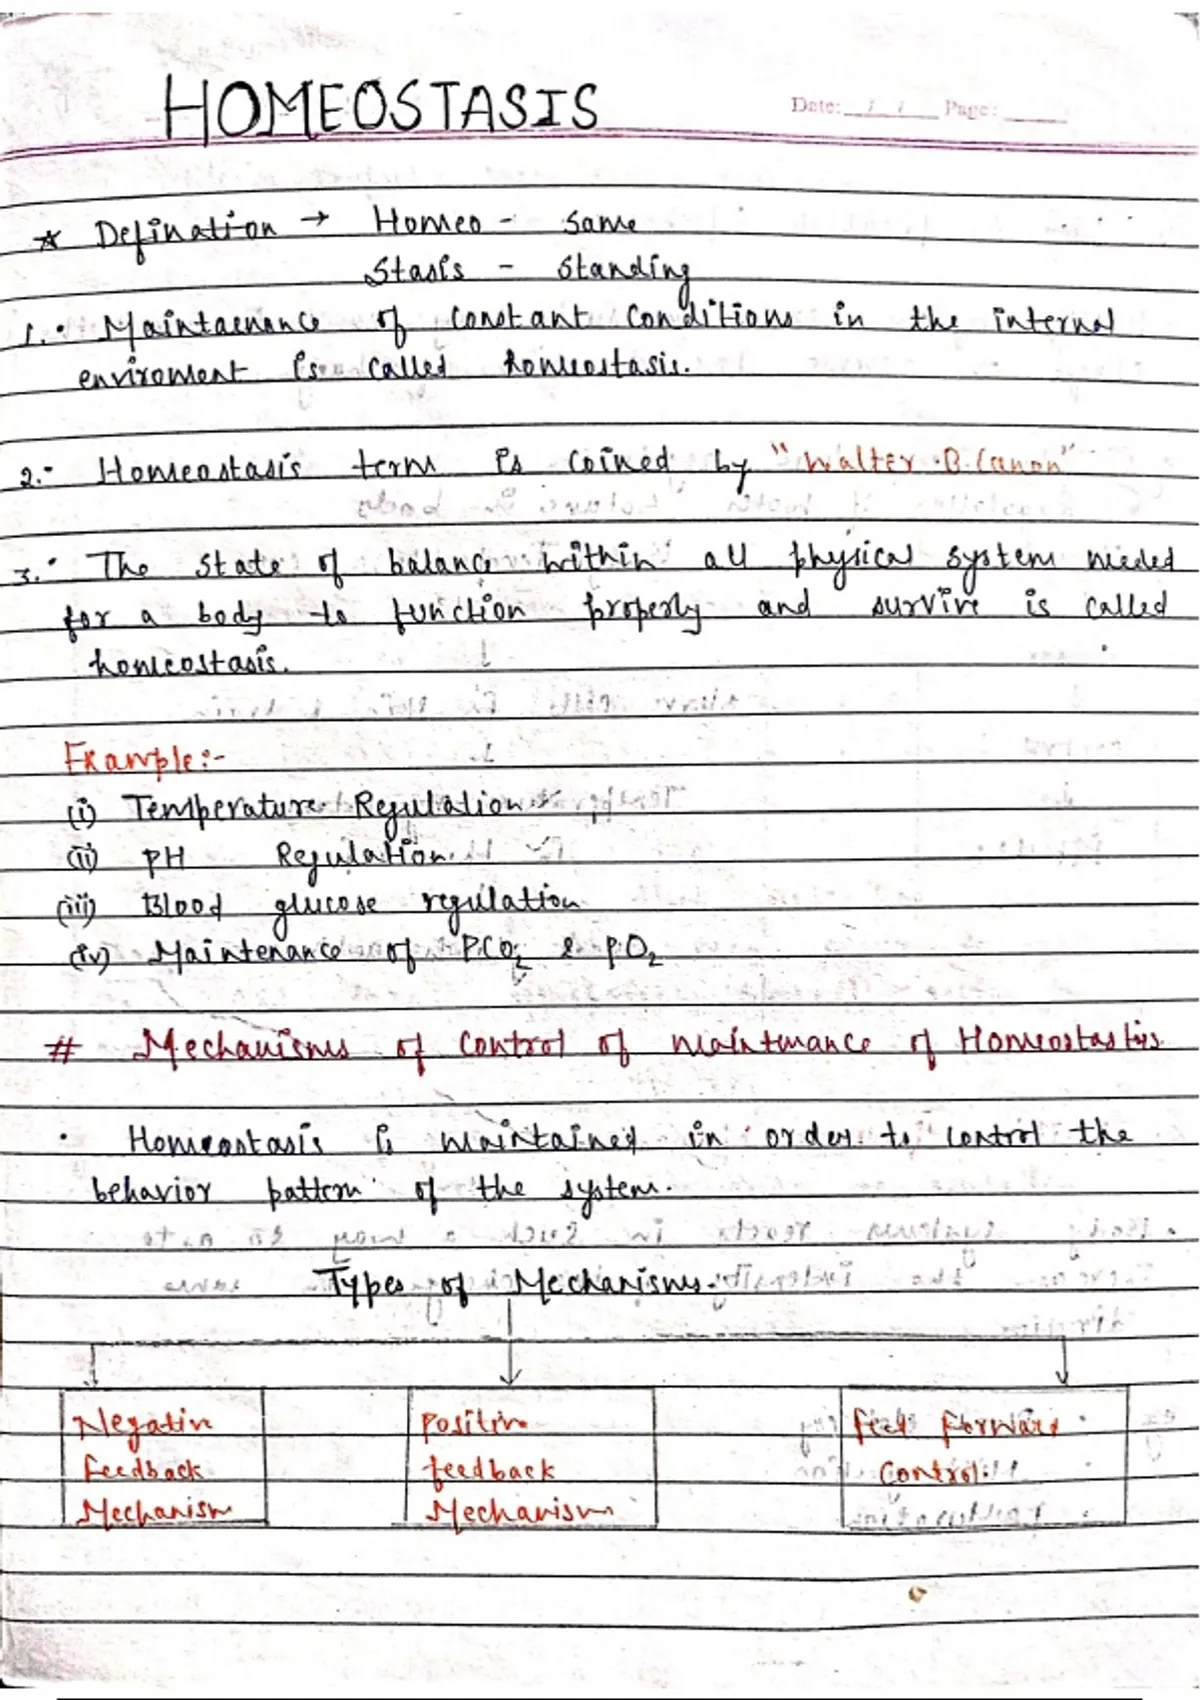 HOMEOSTASIS
Date: / / Page:
☆ Defination → Homeo - Same
Stasis - Standing
1.• Maintaenance of constant conditions in the internal
enviroment is called homeostasis.
2.- Homeostasis term is coined by "Walter .B. Canon"
3.• The state of balance within all physical system needed
for a body to function properly and survive is called
homeostasis.
Example:-
(i) Temperature Regulation
(ii) pH Regulation
(iii) Blood glucose regulation
(iv) Maintenance of PCO₂ & pO₂
# Mechanisms of control of maintenance of Homeostastis
• Homeostasis is maintained in order to control the
behavior pattern of the system.
Types of Mechanisms.
Negative Positive Feed Forward
feedback feedback Control
Mechanism Mechanism